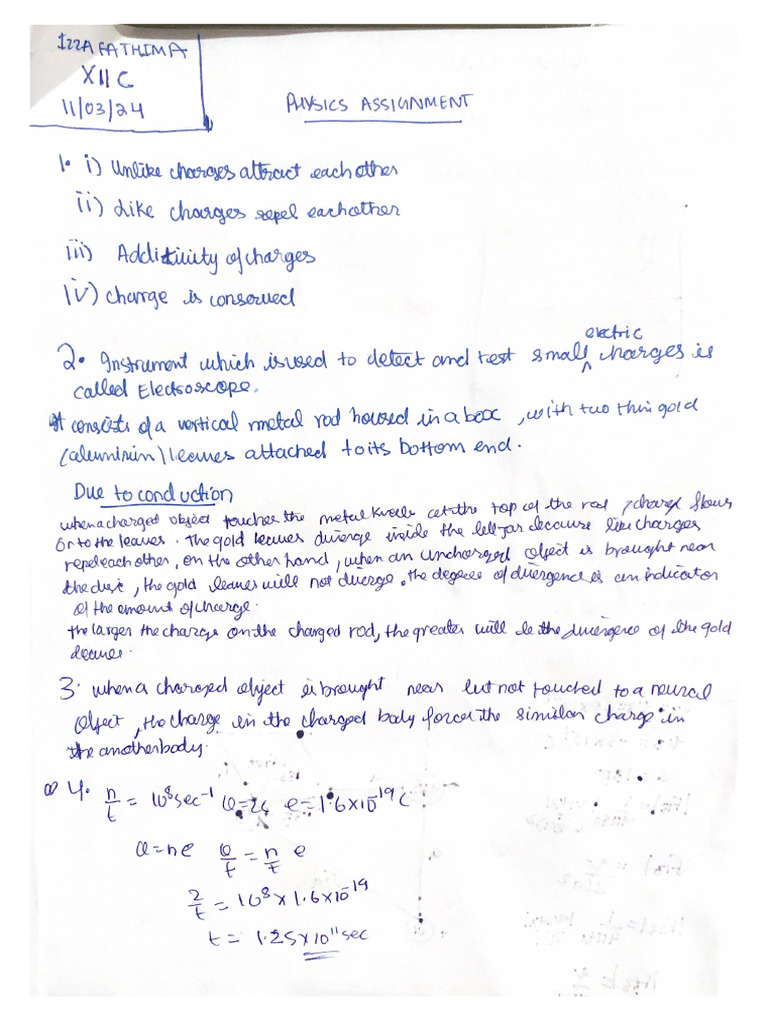 IZZA FATHIMA
XII C
11/03/24
PHYSICS ASSIGNMENT
1. i) Unlike charges attract each other
ii) Like charges repel each other
iii) Additivity of charges
iv) charge is conserved
electric
2. Instrument which is used to detect and test small ^ charges is
called Electroscope.
It consists of a vertical metal rod housed in a box, with two thin gold
(aluminin) leaves attached to its bottom end.
Due to conduction
when a charged object touches the metal at the top of the rod, charge flows
on to the leaves. The gold leaves diverge inside the bell jar because like charges
repel each other, on the other hand, when an uncharged object is brought near
the disc, the gold leaves will not diverge. The degree of divergence is an indicator
of the amount of charge.
the larger the charge on the charged rod, the greater will be the divergence of the gold
leaves.
3. when a charged object is brought near but not touched to a neural
object, the charge in the charged body forces the similar charge in
the another body.
4. n/t = 10⁸ sec⁻¹ Q=2C e=1.6×10⁻¹⁹C
Q=ne Q/t = n/t e
2/t = 10⁸ × 1.6×10⁻¹⁹
t = 1.25×10¹¹ sec